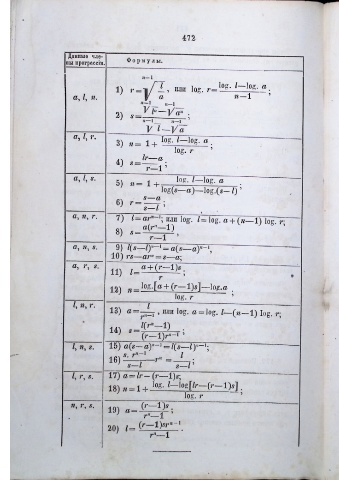 472
Данные члены прогрессіи. Формулы.
a, l, n. 1) r = \sqrt[n-1]{\frac{l}{a}}, или log. r = \frac{log. l — log. a}{n—1};
2) s = \frac{\sqrt[n-1]{l^n} — \sqrt[n-1]{a^n}}{\sqrt[n-1]{l} — \sqrt[n-1]{a}};
a, l, r. 3) n = 1 + \frac{log. l — log. a}{log. r};
4) s = \frac{lr—a}{r—1};
a, l, s. 5) n = 1 + \frac{log. l — log. a}{log(s—a) — log.(s—l)};
6) r = \frac{s—a}{s—l};
a, n, r. 7) l = ar^{n-1}; или log. l = log. a + (n—1) log. r;
8) s = \frac{a(r^n—1)}{r—1},
a, n, s. 9) l(s—l)^{n-1} = a(s—a)^{n-1},
10) rs—ar^n = s—a;
a, r, s. 11) l = \frac{a+(r—1)s}{r};
12) n = \frac{log.[a+(r—1)s] — log.a}{log. r};
l, n, r. 13) a = \frac{l}{r^{n-1}}, или log. a = log. l—(n—1) log. r;
14) s = \frac{l(r^n—1)}{(r—1)r^{n-1}};
l, n, s. 15) a(s—a)^{n-1} = l(s—l)^{n-1};
16) \frac{s. r^{n-1}}{s—l} — r^n = \frac{l}{s—l};
l, r, s. 17) a = lr—(r—1)s;
18) n = 1 + \frac{log. l — log[lr—(r—1)s]}{log. r};
n, r, s. 19) a = \frac{(r—1)s}{r^n—1};
20) l = \frac{(r—1)sr^{n-1}}{r^n—1}.